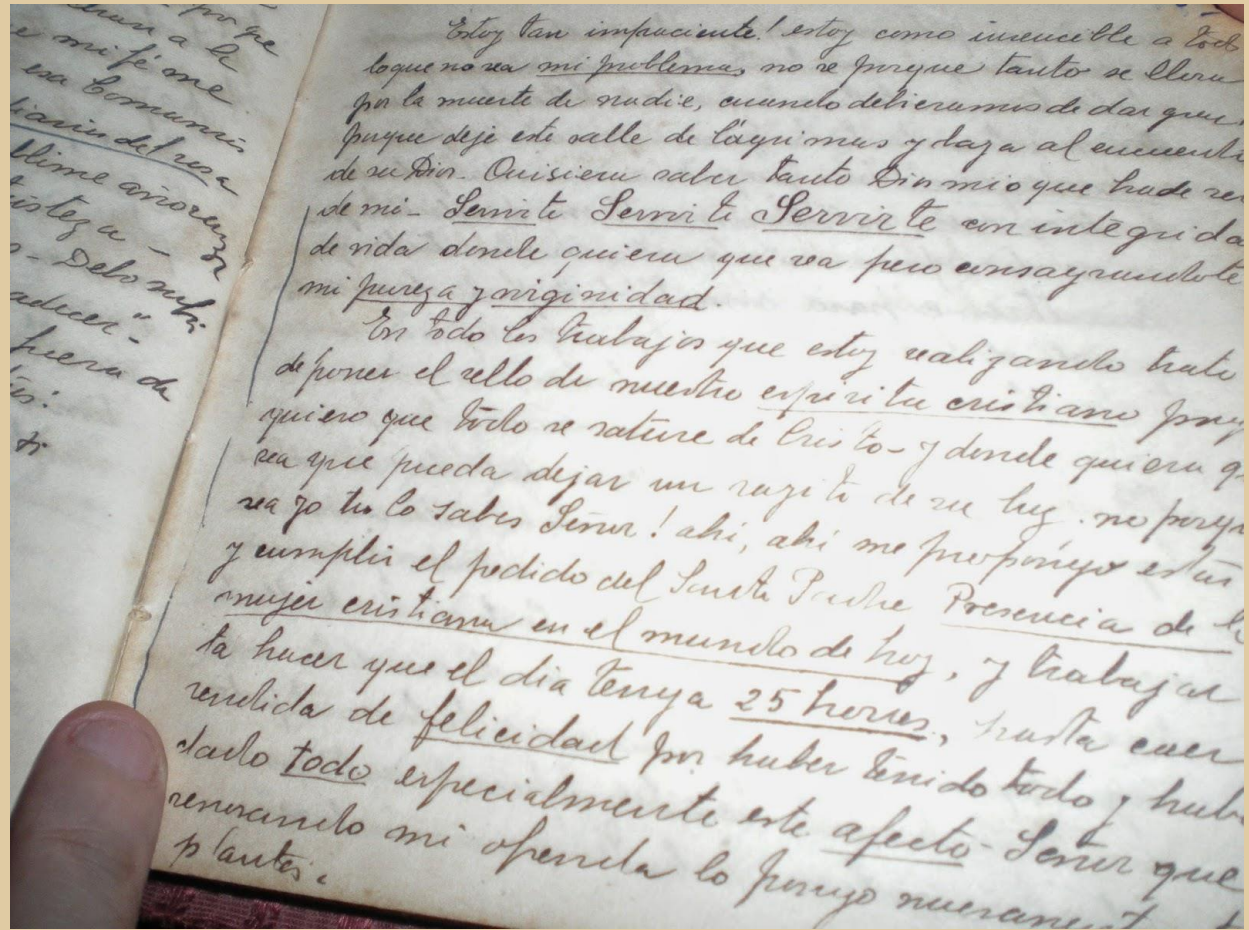 por que
a la
e mi fé me
esa Comunis
diario del rosa
blime añoranza
isteza -
- Debo subi
aducer" -
fuera de
és!
ti
Estoy tan impaciente! estoy como insencible a todo
loque no sea mi problema, no se porque tanto se llora
por la muerte de nadie, cuando debieramos de dar grac
porque deje este valle de lágrimas y baza al encuentr
de su Dios. Quisiera saber tanto Dios mio que hade ser
de mi - Servirte Servirte Servirte con integrida
de vida donde quiera que sea pero consagrandote
mi pureza y virginidad.
En todo los trabajos que estoy realizando trato
de poner el sello de nuestro espiritu cristiano porq
quiero que todo se sature de Cristo - y donde quiera q
sea que pueda dejar un rayito de su luz. no porqu
sea yo tu lo sabes Señor! ahi, ahi me propongo estar
y cumplir el pedido del Santo Padre Presencia de l
mujer cristiana en el mundo de hoy, y trabajar
ta hacer que el dia tenga 25 horas, hasta caer
rendida de felicidad por haber tenido todo y habe
dado todo especialmente este afecto - Señor que
renovando mi ofrenda lo pongo nuevament
plantas.